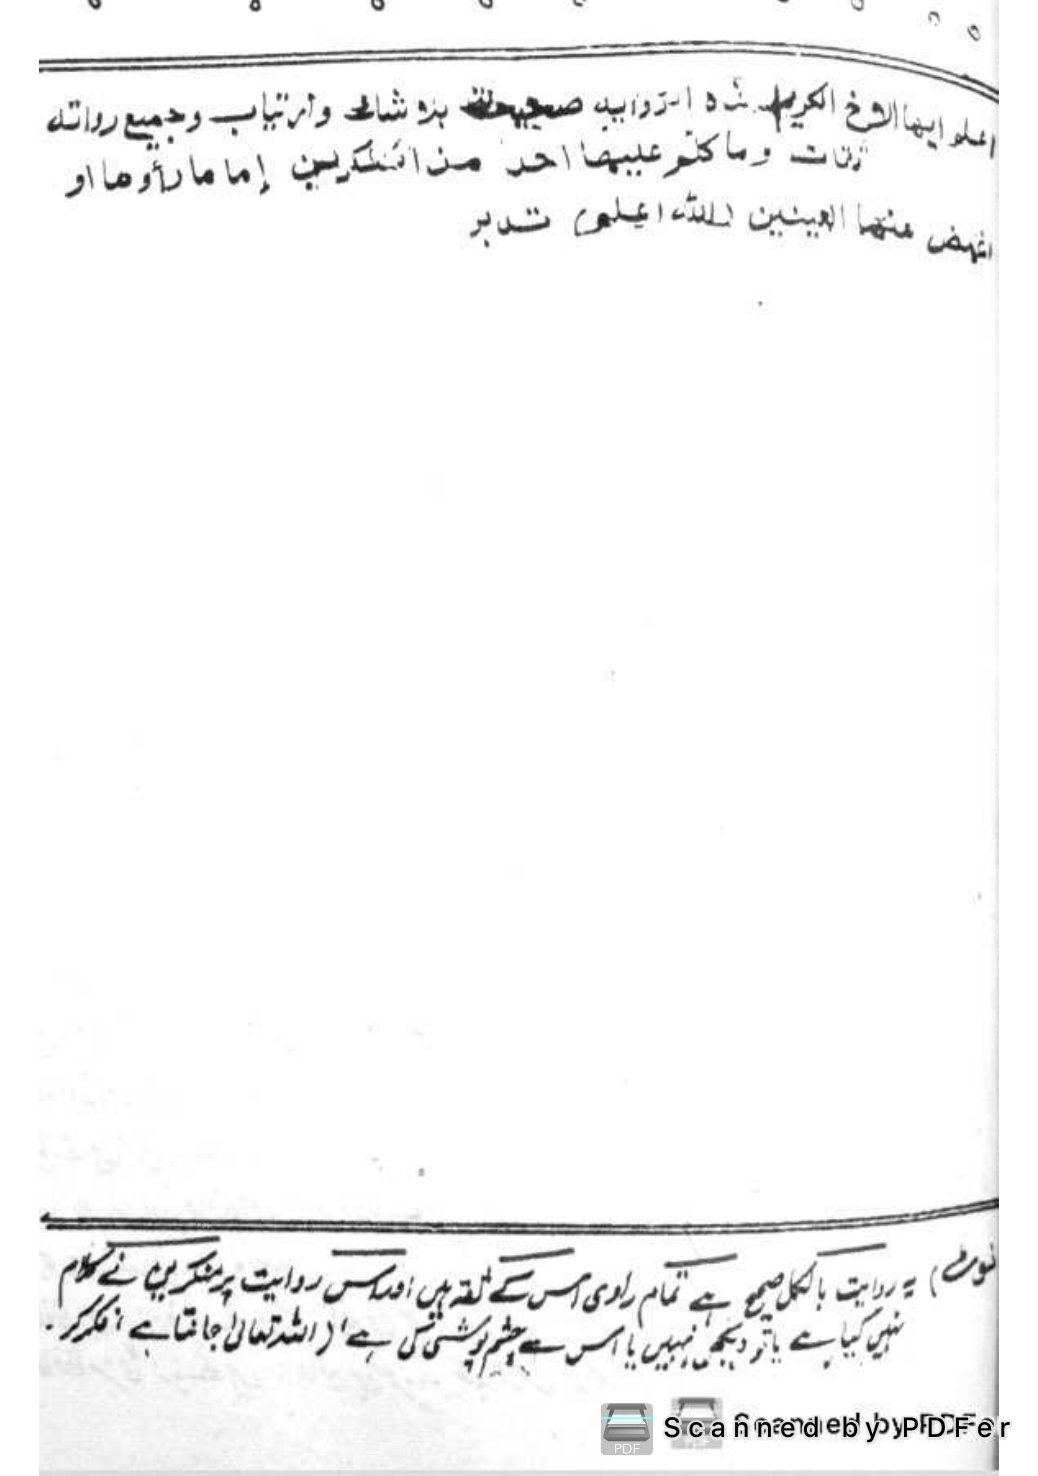 اعلم ايها الشيخ الكريم هذه الرواية صحيحة بلا شك وارتياب وجميع رواته
ثقات وما كلم عليها احد من المنكرين إما ما رأوها او
اغمض عنها العينين الله اعلم تدبر
نوٹ) یہ روایت بالکل صحیح ہے تمام راوی اس کے ثقہ ہیں اور اس روایت پر منکرین نے کلام
نہیں کیا ہے یا تو دیکھی نہیں یا اس سے چشم پوشی کی ہے (اللہ تعالیٰ جانتا ہے) فکر کر۔
Scanned by PDFer
Scanned by PDFer
PDF